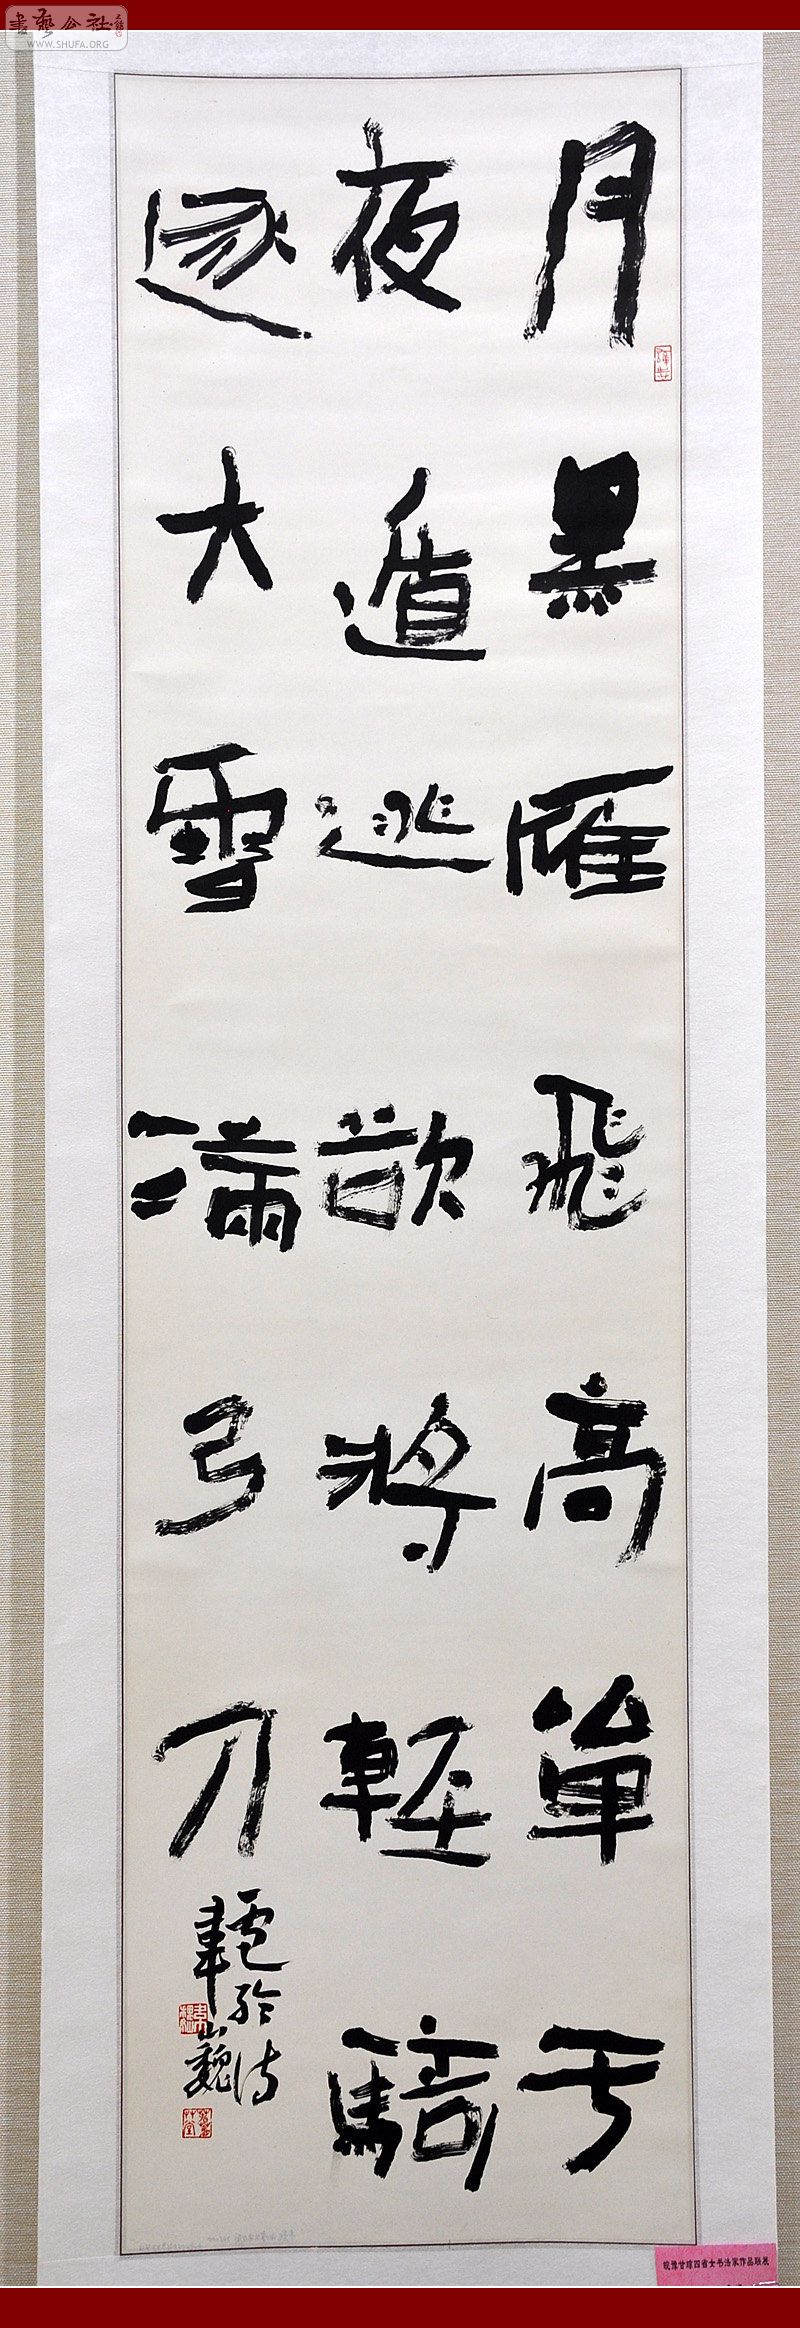 書藝公社
WWW.SHUFA.ORG
月黑雁飛高單于
夜遁逃欲將輕騎
逐大雪滿弓刀
盧綸詩
皖豫甘琼四省女书法家作品联展